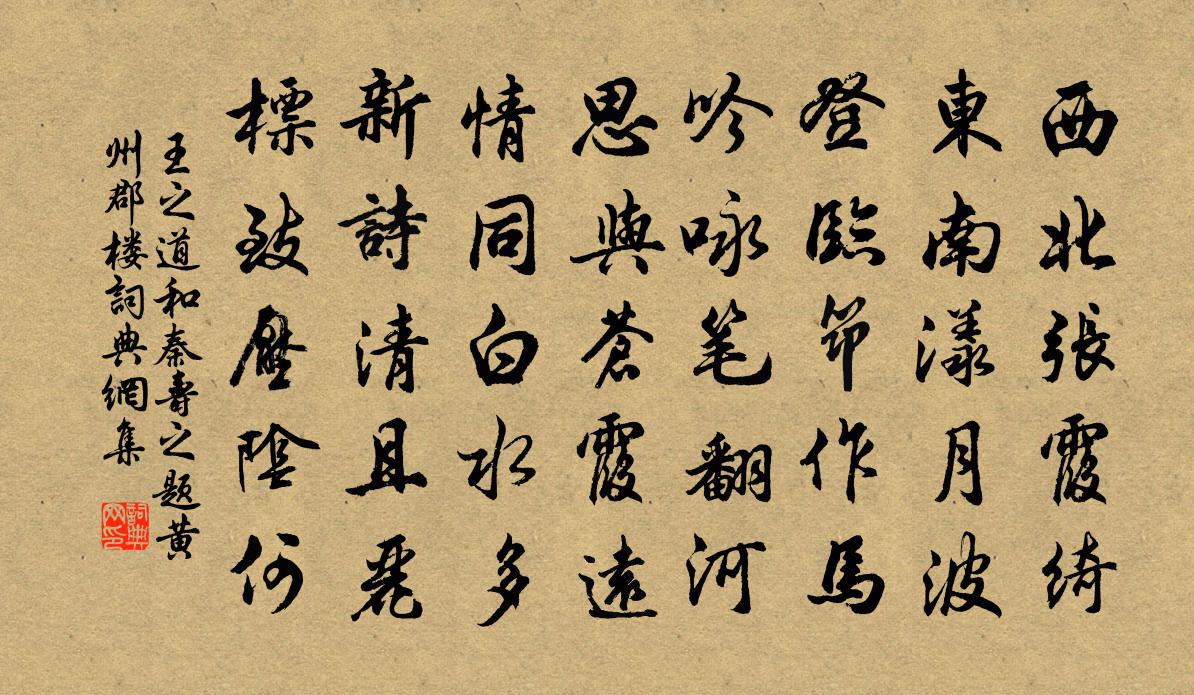 西北張霞綺
東南漾月波
登臨笻作馬
吟咏笔翻河
思與蒼霞遠
情同白水多
新詩清且麗
標致壓陰何
王之道和秦壽之題黄
州郡楼詞典網集
詞典网印